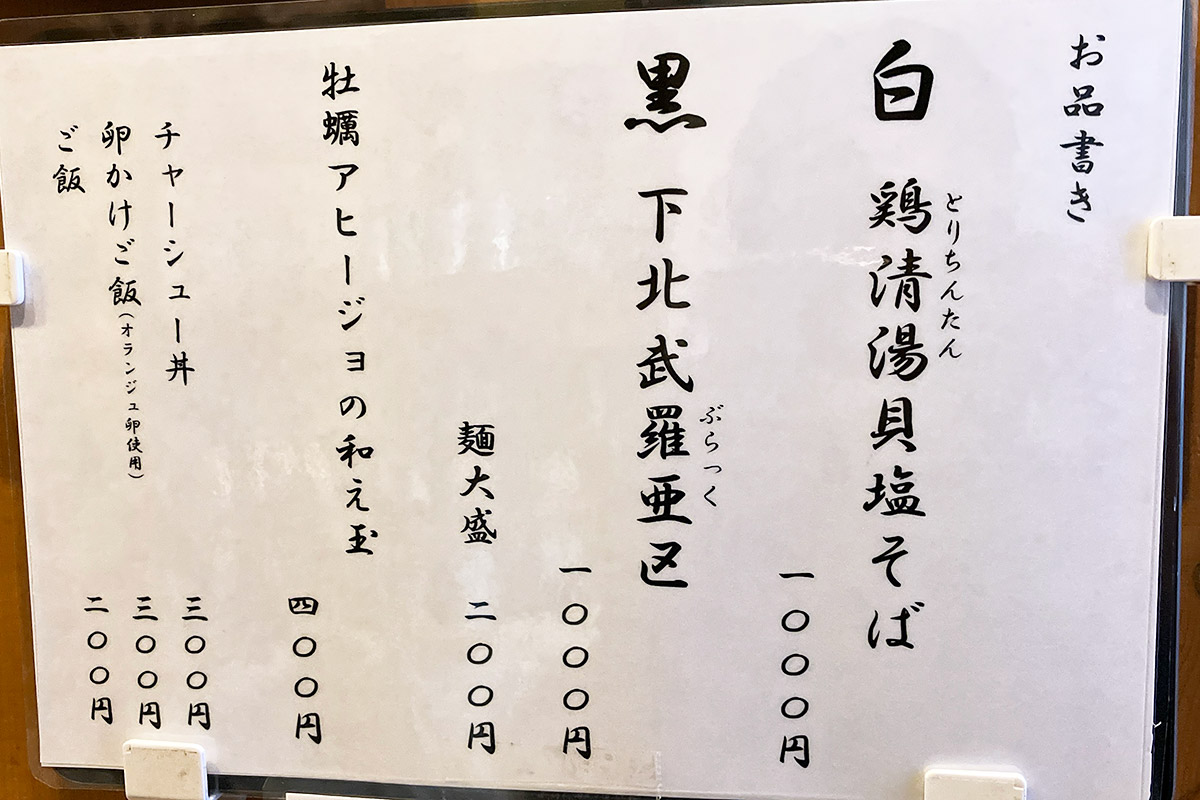 お品書き
白 鶏清湯貝塩そば
とりちんたん
一〇〇〇円
黒 下北武羅亜区
ぶらっく
一〇〇〇円
麺大盛 二〇〇円
牡蠣アヒージョの和え玉
四〇〇円
チャーシュー丼 三〇〇円
卵かけご飯（オランジュ卵使用） 三〇〇円
ご飯 二〇〇円